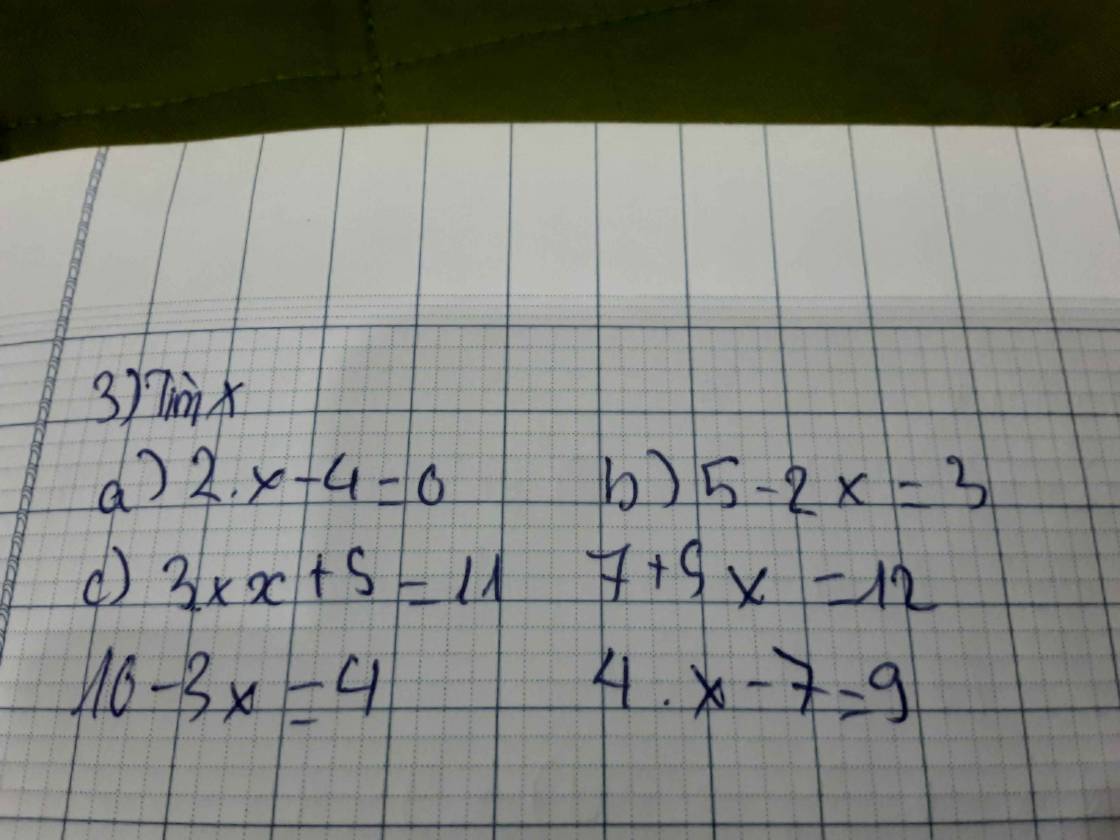 3) Tìm x
a) 2.x-4=0 b) 5-2x=3
c) 3xx+5=11 7+5x=12
10-3x=4 4.x-7=9